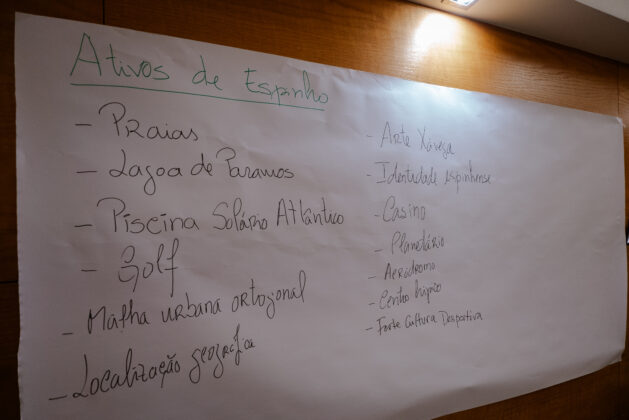 Ativos de Espinho
- Praias
- Lagoa de Paramos
- Piscina Solário Atlântico
- Golf
- Malha urbana ortogonal
- Localização geográfica
- Arte Xávega
- Identidade espinhense
- Casino
- Planetário
- Aeródromo
- Centro hípico
- Forte Cultura Desportiva